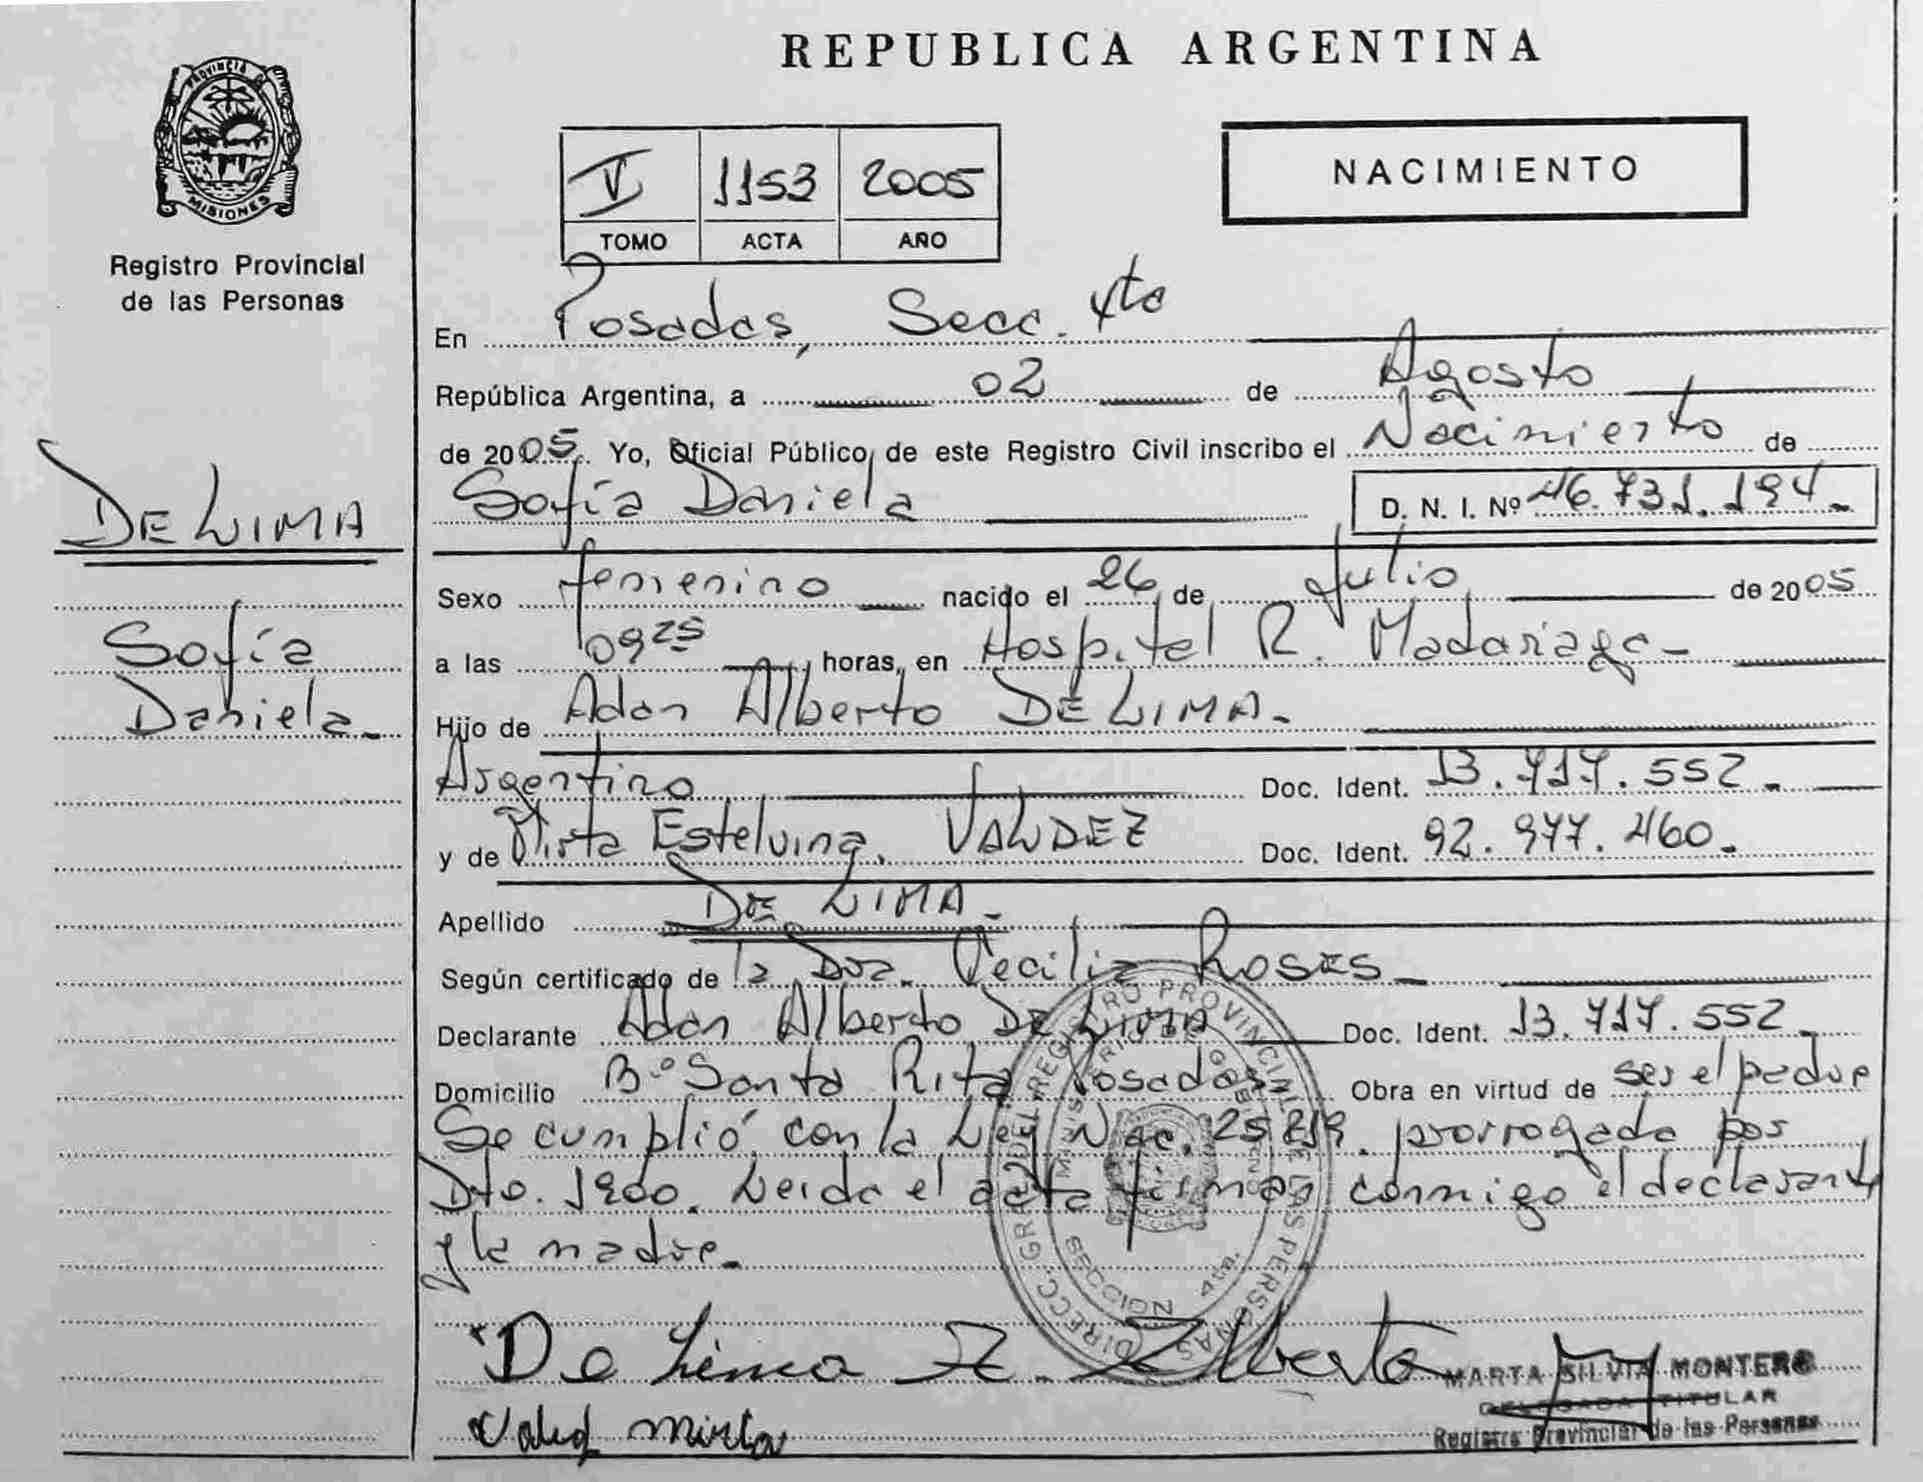 REPUBLICA ARGENTINA
PROVINCIA DE
MISIONES
Registro Provincial
de las Personas
V 1153 2005
TOMO ACTA AÑO
NACIMIENTO
En Posadas, Secc. 4ta
República Argentina, a 02 de Agosto
de 2005. Yo, Oficial Público de este Registro Civil inscribo el Nacimiento de
Sofía Daniela D. N. I. Nº 46.731.194.-
DE LIMA
Sofía
Daniela.-
Sexo femenino nacido el 26 de Julio de 2005
a las 09 25 horas, en Hospital R. Madariaga-
Hijo de Adan Alberto DE LIMA.-
Argentino Doc. Ident. 13.717.552.-
y de Mirta Estelvina, VALDEZ Doc. Ident. 92.977.460.-
Apellido DE LIMA.-
Según certificado de la Dra. Cecilia Roses-
Declarante Adan Alberto DE LIMA Doc. Ident. 13.717.552.-
Domicilio Bº Santa Rita Posadas Obra en virtud de ser el padre
Se cumplió con la Ley Nac. 25819 prorrogada por
Dto. 1900. Leida el acta firman conmigo el declarante
y la madre.-
DIRECC. GRAL. DEL REGISTRO PROVINCIAL DE LAS PERSONAS
MINISTERIO DE GOBIERNO
SECCION 4ta.
De Lima A. Alberto
Valdez Mirta
MARTA SILVIA MONTERO
DELEGADA TITULAR
Registro Provincial de las Personas